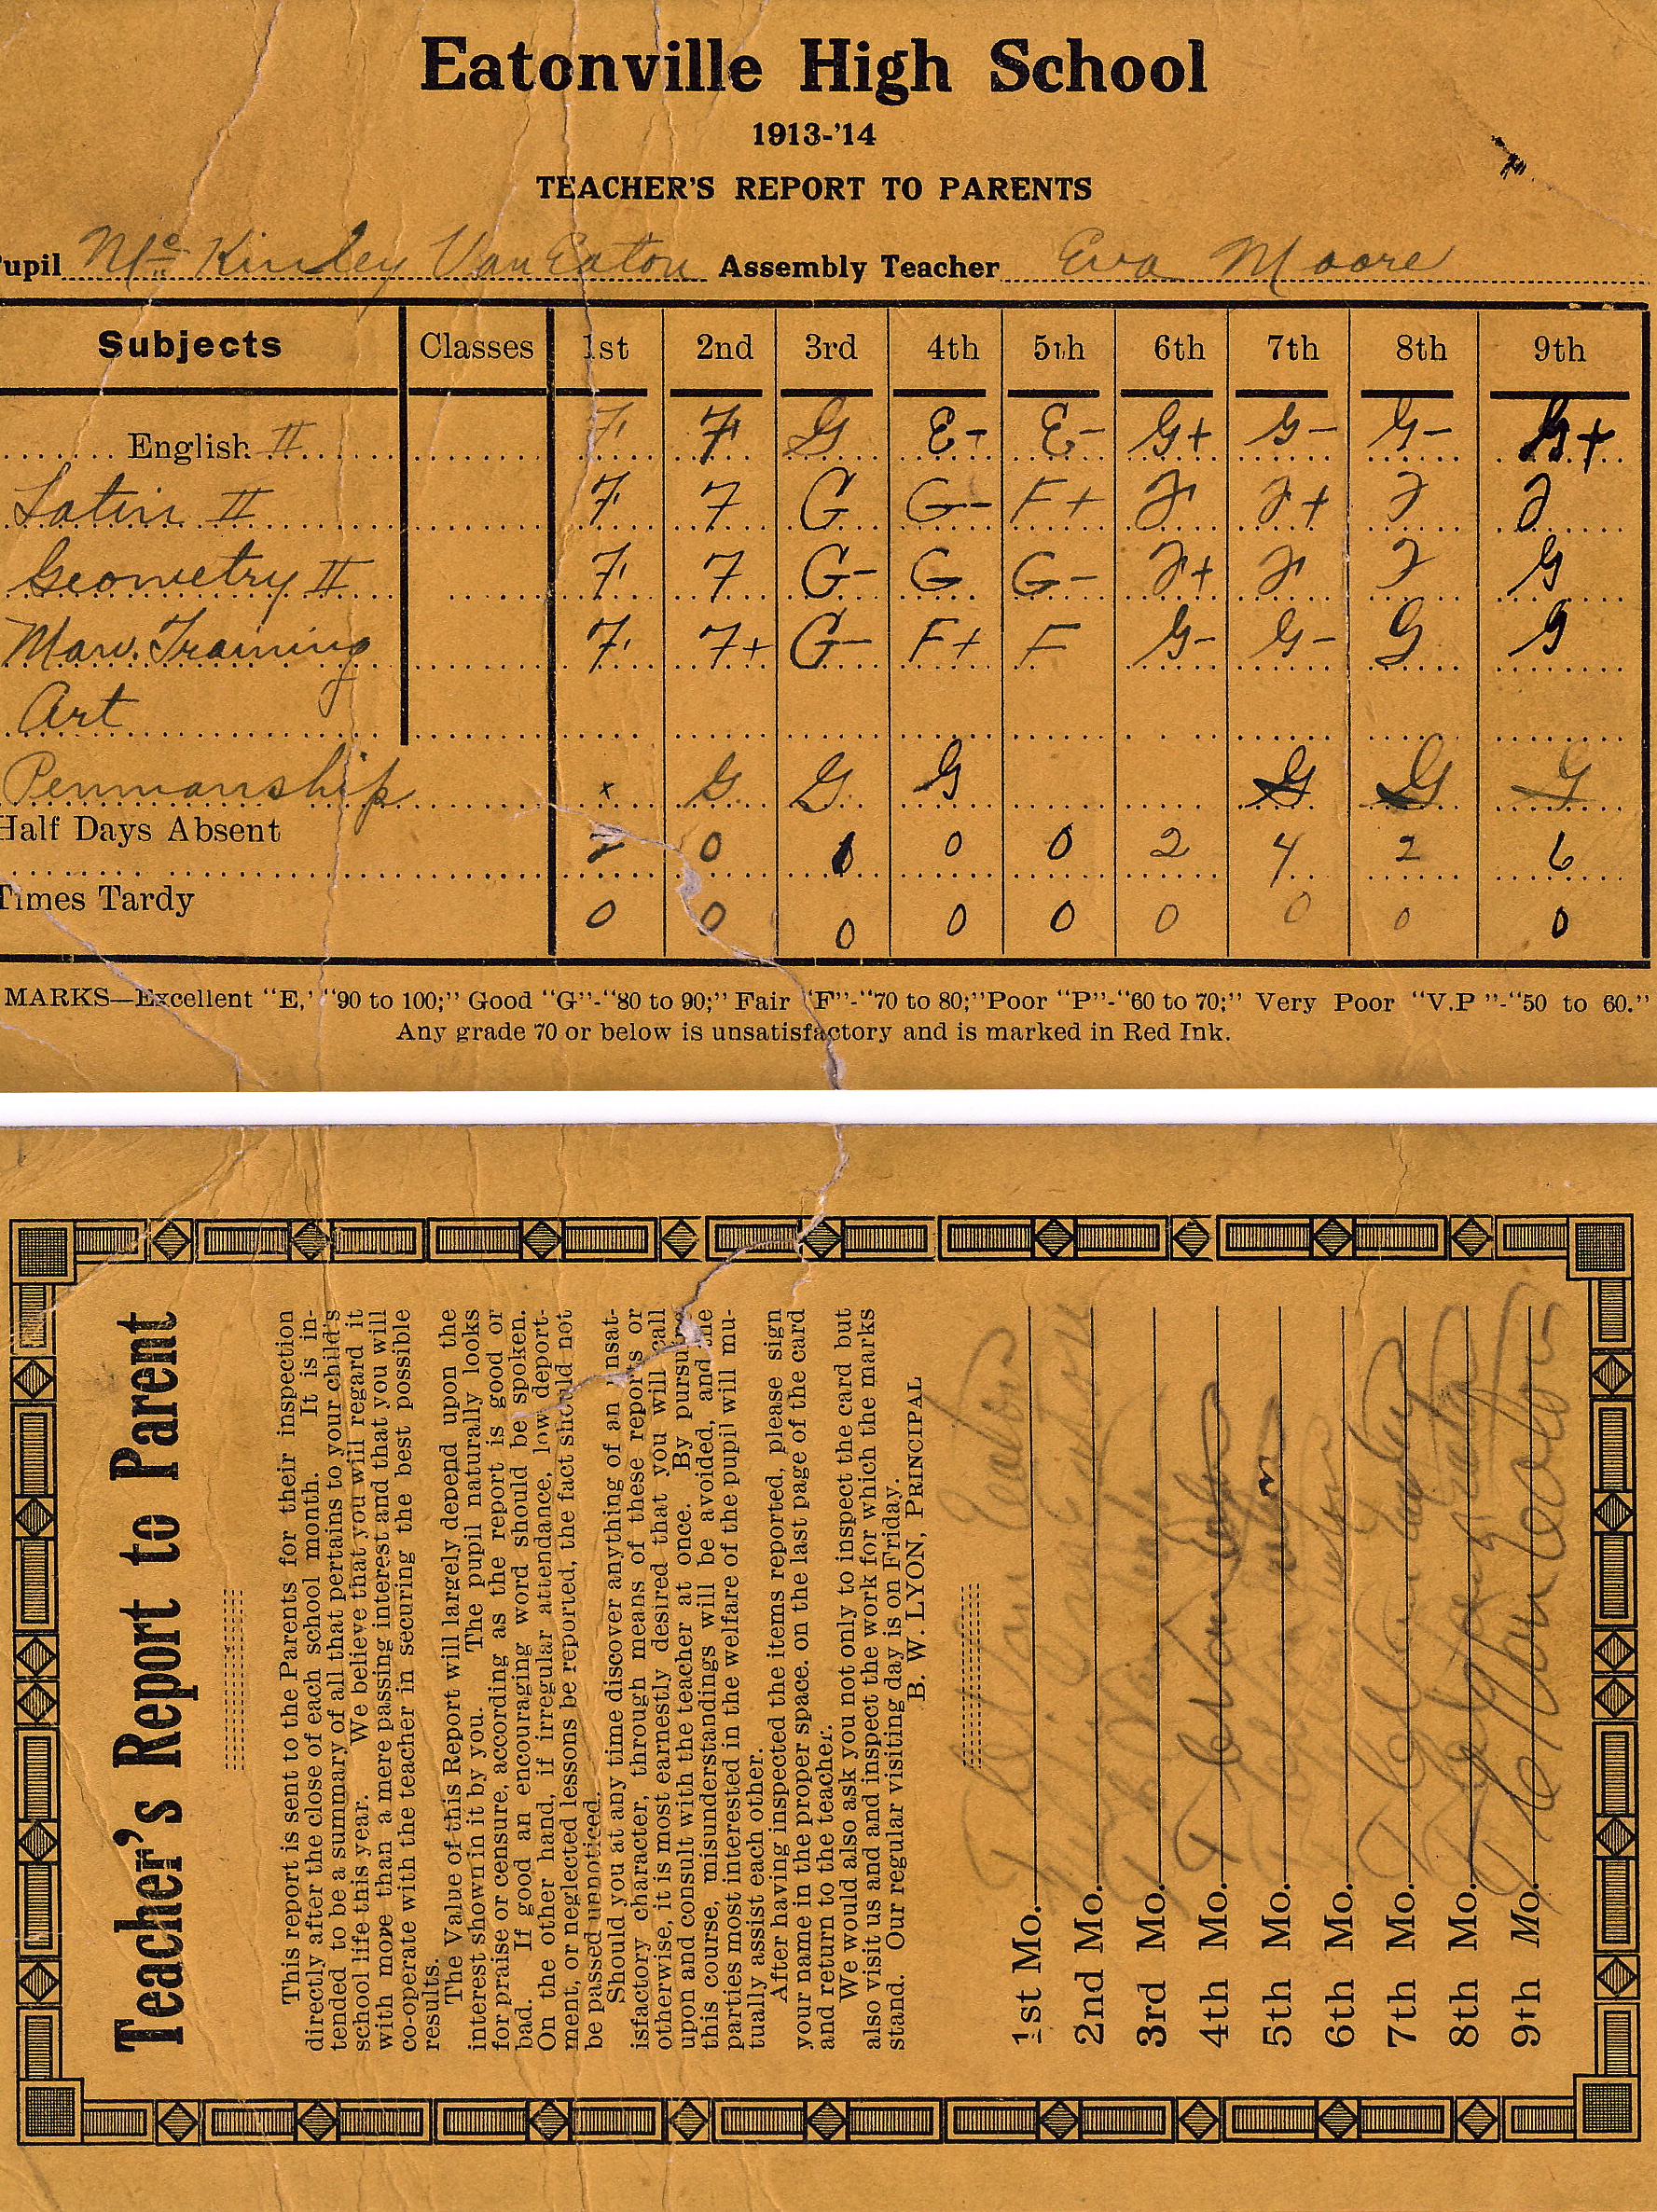 Eatonville High School
1913-'14
TEACHER'S REPORT TO PARENTS
upil McKinley Van Eaton Assembly Teacher Eva Moore
Subjects Classes 1st 2nd 3rd 4th 5th 6th 7th 8th 9th
English II F F G E- E- G+ G- G- G+
Latin II F F G G- F+ F F+ F F
Geometry II F F G- G G- F+ F F G
Man. Training F F+ G- F+ F G- G- G G
Art
Penmanship x G G G G G G
Half Days Absent 0 0 0 2 4 2 6
Times Tardy 0 0 0 0 0 0 0 0 0
MARKS—Excellent "E,' "90 to 100;" Good "G"-"80 to 90;" Fair "F"-"70 to 80;"Poor "P"-"60 to 70;" Very Poor "V.P "-"50 to 60."
Any grade 70 or below is unsatisfactory and is marked in Red Ink.
Teacher's Report to Parent
This report is sent to the Parents for their inspection
directly after the close of each school month. It is in-
tended to be a summary of all that pertains to your child's
school life this year. We believe that you will regard it
with more than a mere passing interest and that you will
co-operate with the teacher in securing the best possible
results.
The Value of this Report will largely depend upon the
interest shown in it by you. The pupil naturally looks
for praise or censure, according as the report is good or
bad. If good an encouraging word should be spoken.
On the other hand, if irregular attendance, low deport-
ment, or neglected lessons be reported, the fact should not
be passed unnoticed.
Should you at any time discover anything of an unsat-
isfactory character, through means of these reports or
otherwise, it is most earnestly desired that you will call
upon and consult with the teacher at once. By pursuing
this course, misunderstandings will be avoided, and the
parties most interested in the welfare of the pupil will mu-
tually assist each other.
After having inspected the items reported, please sign
your name in the proper space. on the last page of the card
and return to the teacher.
We would also ask you not only to inspect the card but
also visit us and and inspect the work for which the marks
stand. Our regular visiting day is on Friday.
B. W. LYON, PRINCIPAL
1st Mo. Van Eaton
2nd Mo.
3rd Mo.
4th Mo.
5th Mo.
6th Mo.
7th Mo.
8th Mo.
9th Mo. Van Eaton